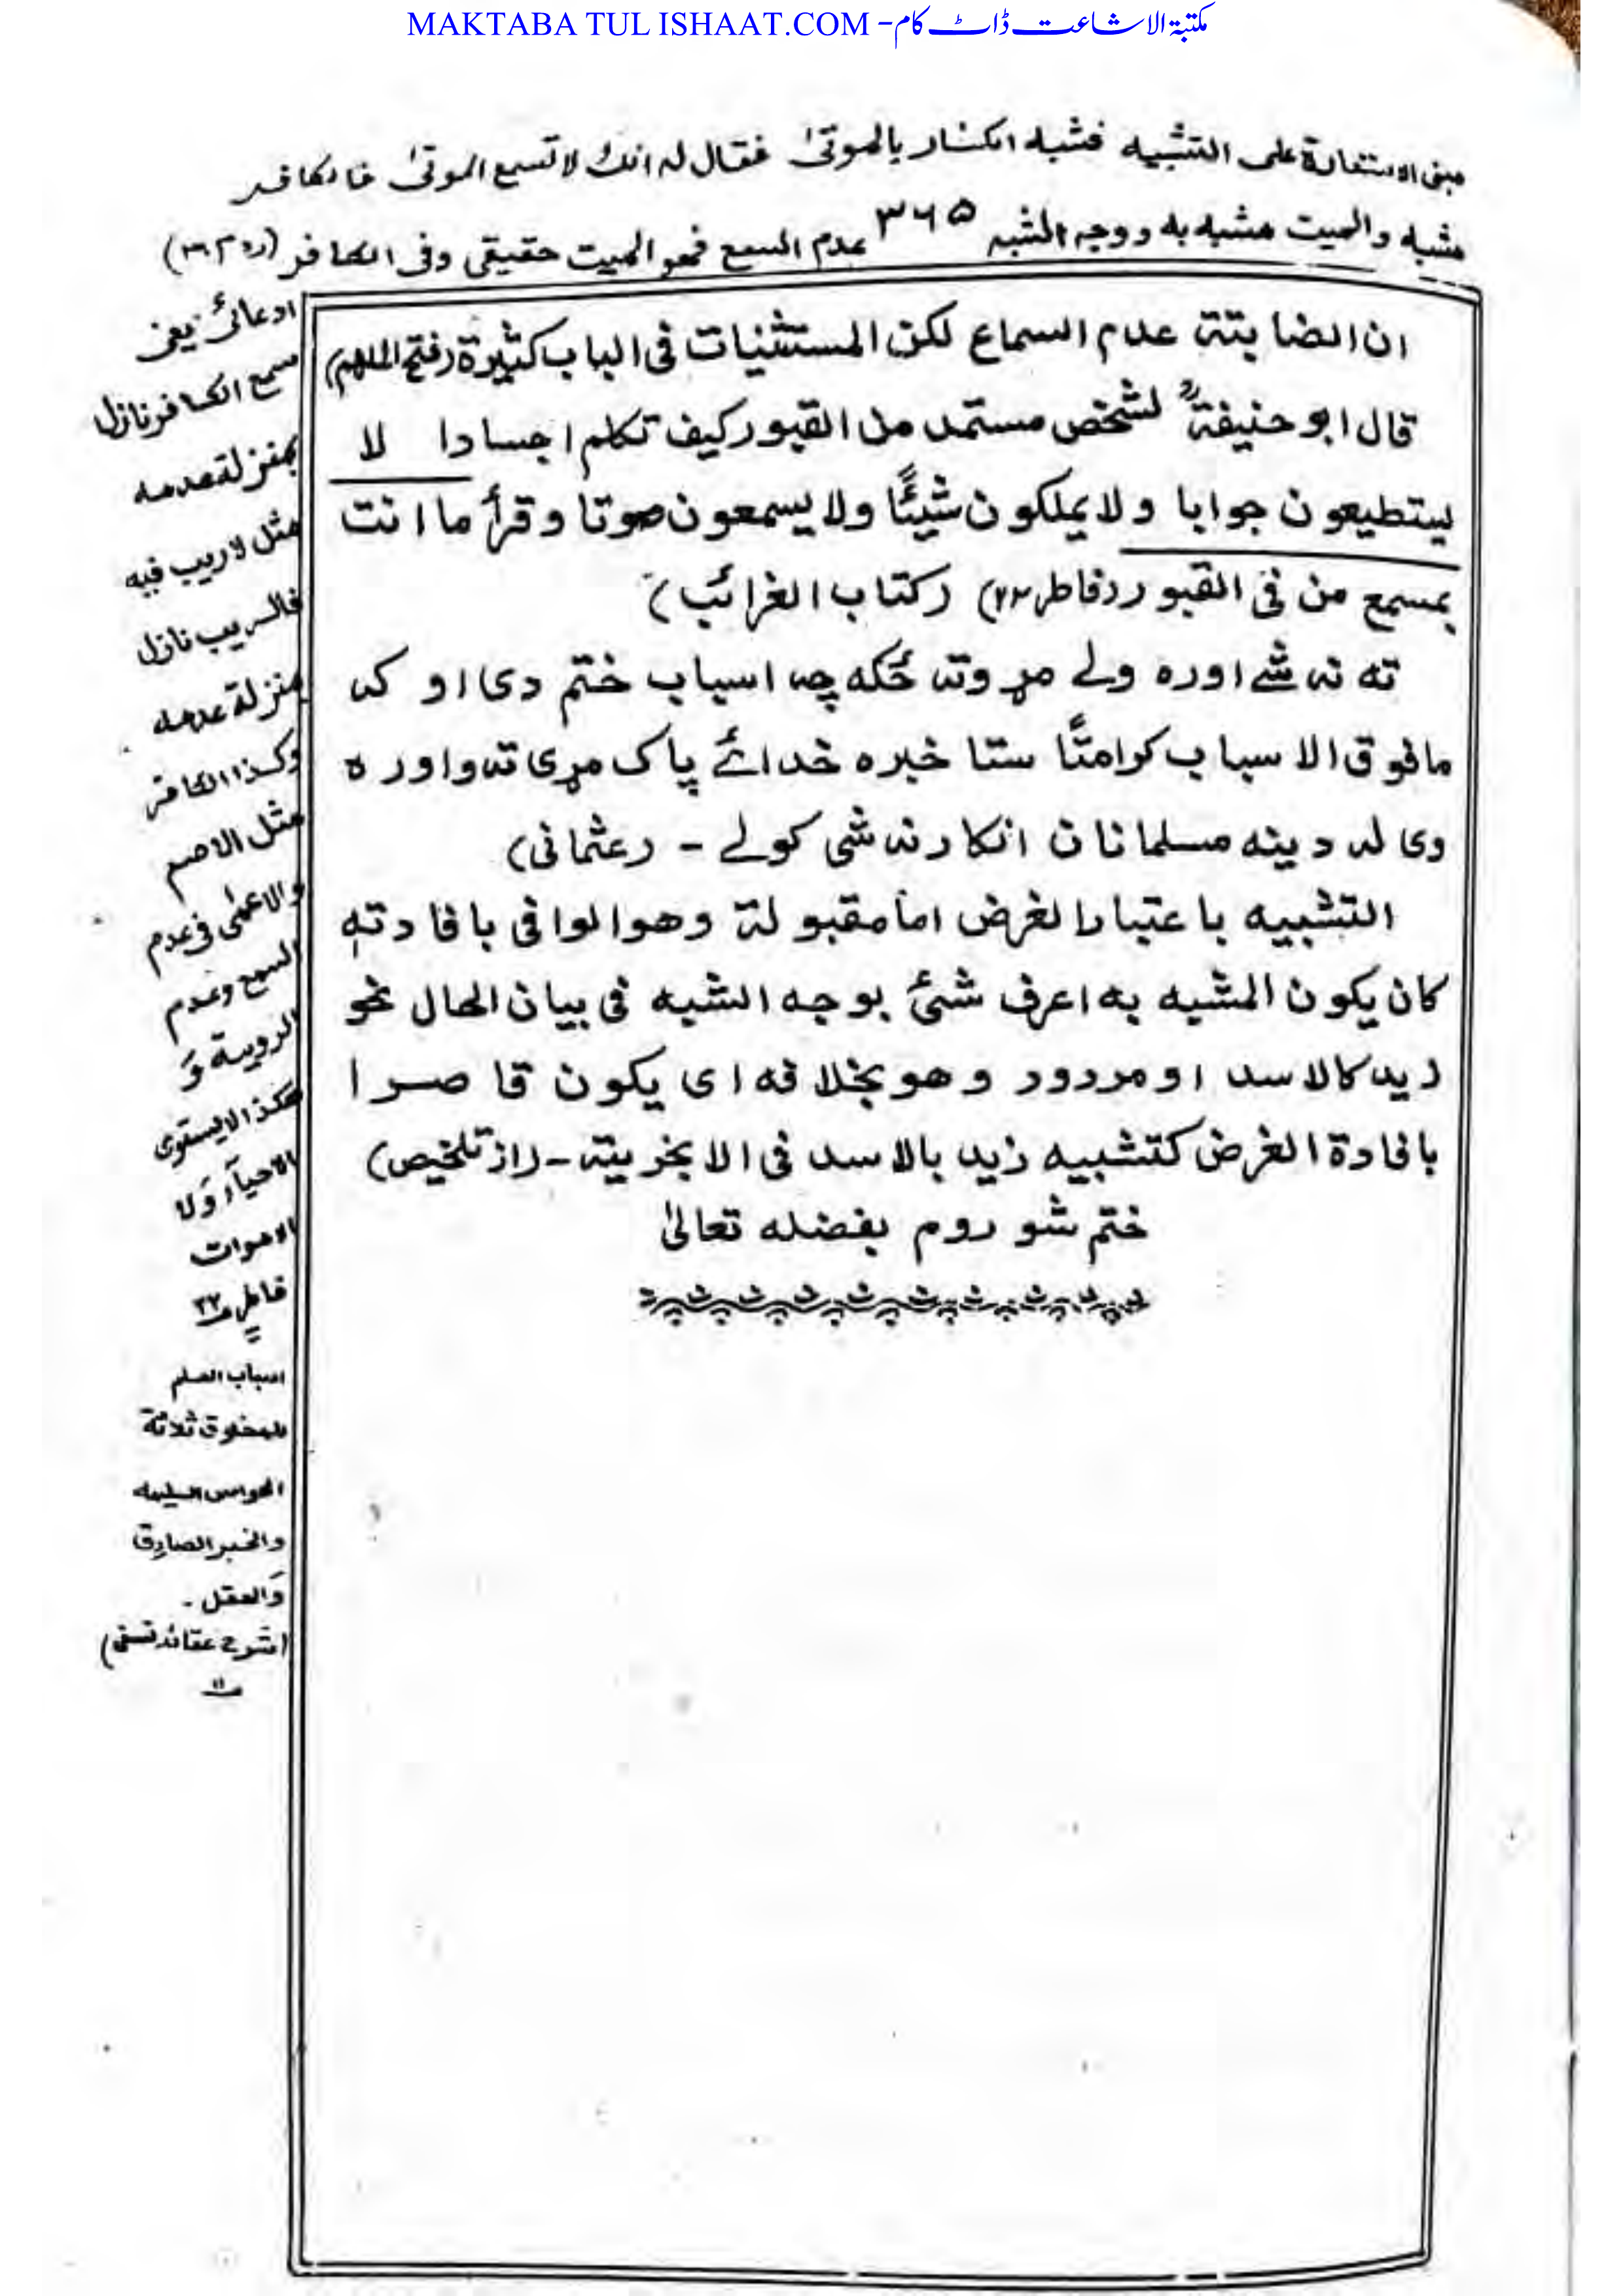 MAKTABA TUL ISHAAT.COM - مکتبۃ الاشاعت ڈاٹ کام
مبنی الاستعارة علی التشبیه فشبه الکفار بالموتیٰ فقال له انك لا تسمع الموتیٰ فالکافر
مشبه والمیت مشبه به ووجه الشبه ۳۶۵ عدم السمع فهو المیت حقیقی وفی الکافر
ان الضابتة عدم السماع لکن المستثنیات فی الباب کثیرة (فتح الملهم)
قال ابو حنیفةؒ لشخص مستمد من القبور کیف تکلم اجسادا لا
یستطیعون جوابا ولا یملکون شیئًا ولا یسمعون صوتا وقرأ ما انت
بمسمع من فی القبور (فاطر ۲۲) (کتاب الغرائب)
ته نه شے اوره ولے مړو ته ځکه چه اسباب ختم دی او که
مافوق الاسباب کرامتًا ستا خبره خدائے پاک مړی ته واوره
وی له دینه مسلمانان انکار نه شی کولے - (عثمانی)
التشبیه باعتبار الغرض اما مقبولة وهو الوافی بافادته
کان یکون المشبه به اعرف شئ بوجه الشبه فی بیان الحال نحو
زید کالاسد او مردود وهو بخلافه ای یکون قاصرا
بافادة الغرض کتشبیه زید بالاسد فی الابخریة - (از تلخیص)
ختم شو روم بفضله تعالیٰ
ادعائی یعنی
سمع الکافر نازل
بمنزلة عدمه
مثل لا ریب فیه
فالریب نازل
منزلة عدمه
وکذا الکافر
مثل الاصم
والاعمٰی فی عدم
السمع وعدم
الرویة وَ
هکذا لا یستوی
الاحیآء وَلا
الاموات
فاطر ۲۲
اسباب العلم
للمخلوق ثلاثة
الحواس السلیمه
والخبر الصادق
وَالعقل ۔
(شرح عقائد نسفی)
۱۱